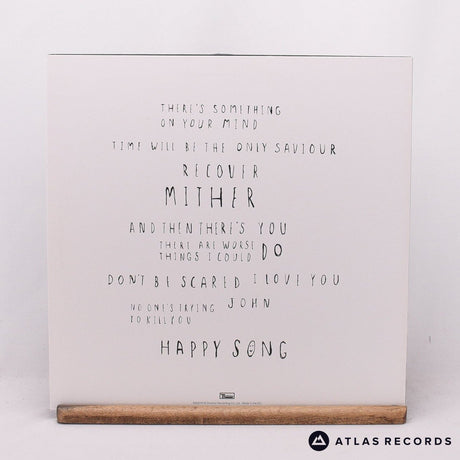 THERE'S SOMETHING
ON YOUR MIND
TIME WILL BE THE ONLY SAVIOUR
RECOVER
MITHER
AND THEN THERE'S YOU
THERE ARE WORSE
THINGS I COULD DO
DON'T BE SCARED I LOVE YOU
JOHN
NO ONE'S TRYING
TO KILL YOU
HAPPY SONG
ATLAS RECORDS